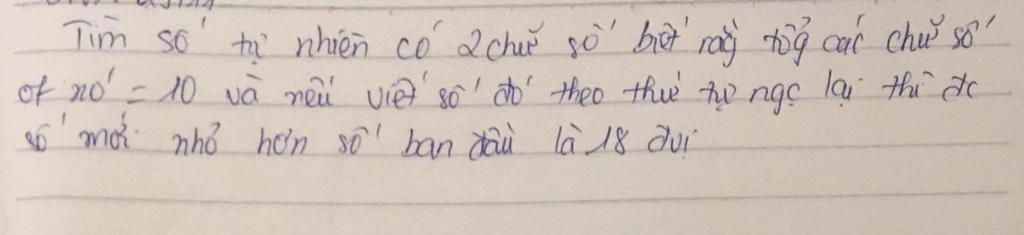 Tìm số tự nhiên có 2 chữ số biết rằg tổg các chữ số
of nó = 10 và nếu viết số đó theo thứ tự ngc lại thì đc
số mới nhỏ hơn số ban đầu là 18 đvị